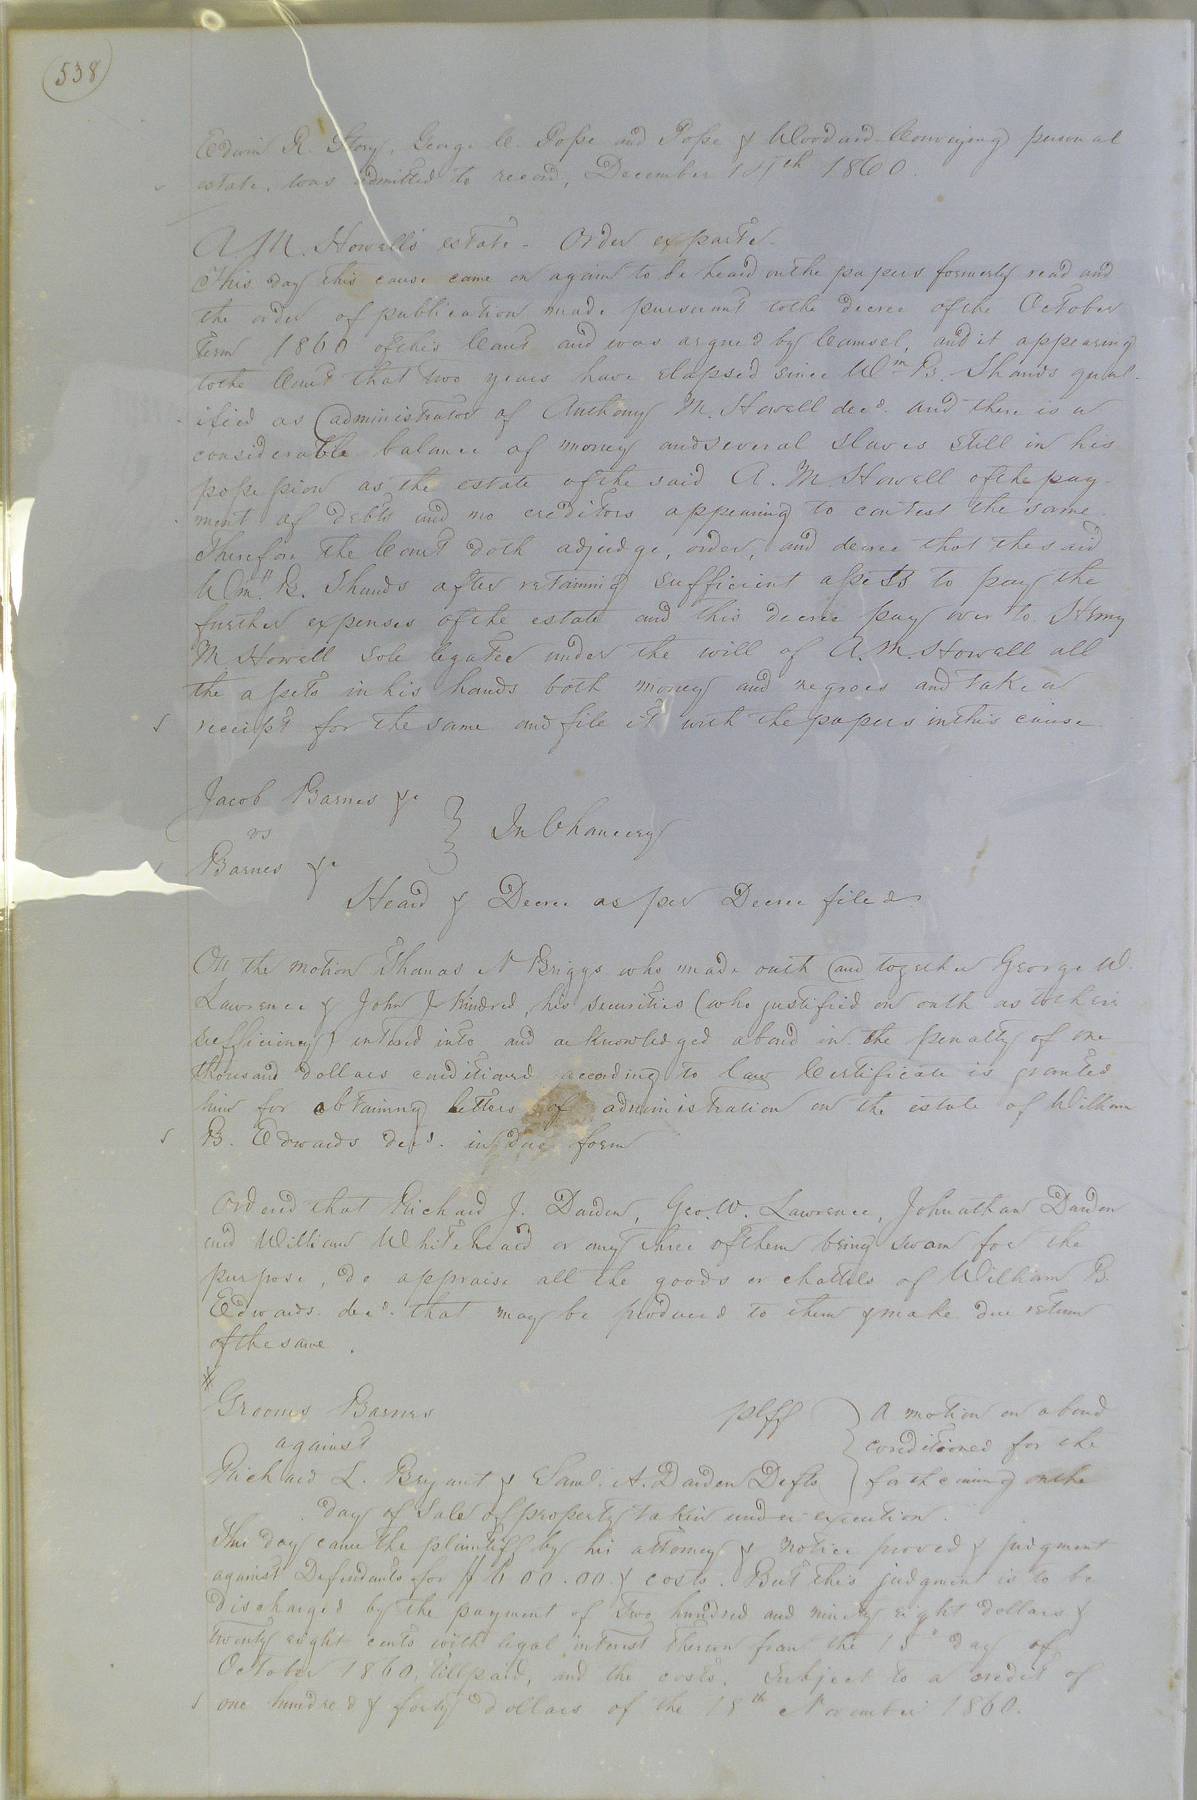 538
Edwin R. Story, George C. Pope and Pope & Woodard Conveying personal
estate, was admitted to record, December 1860.
A. M. Howell's estate - Order exparte.
This day this cause came on again to be heard on the papers formerly read and
the order of publication made pursuant to the decree of the October
Term 1860 of this Court and was argued by Counsel, and it appearing
to the Court that two years have elapsed since Wm B. Shands qual-
ified as administrator of Anthony M. Howell decd. and there is a
considerable balance of money and several slaves still in his
possession as the estate of the said A. M. Howell of the pay-
ment of debts and no creditors appearing to contest the same.
Therefore the Court doth adjudge, order, and decree that the said
Wm. B. Shands after retaining sufficient assets to pay the
further expenses of the estate and this decree pay over to
M Howell sole legatee under the will of A. M. Howell all
the assets in his hands both money and negroes and take a
receipt for the same and file it with the papers in this cause
Jacob Barnes &c
vs
In Chancery
Barnes &c
Heard & Decree as per Decree filed.
On the motion Thomas N Briggs who made oath and together George W.
Lawrence & John J Kindred, his securities (who justified on oath as to their
sufficiency) entered into and acknowledged a bond in the penalty of one
thousand dollars conditioned according to law Certificate is granted
him for obtaining letters of administration on the estate of William
B. Edwards decd. in due form
Ordered that Richard J. Darden, Geo. W. Lawrence, Johnathan Darden
and William Whitehead or any three of them being sworn for the
purpose, do appraise all the goods or chattels of William B.
Edwards decd. that may be produced to them & make due return
of the same.
Grooms Barnes plff
against
Richard L. Bryant & Saml. A. Darden Defts
A motion on a bond
conditioned for the
forthcoming on the
day of Sale of property taken under execution.
This day came the plaintiff by his attorney & notice proved & judgment
against Defendants for $600.00 & costs. But this judgment is to be
discharged by the payment of Two hundred and ninety eight dollars &
twenty eight cents with legal interest thereon from the 15 day of
October 1860, till paid, and the costs. Subject to a credit of
one hundred & forty dollars of the 15th November 1860.